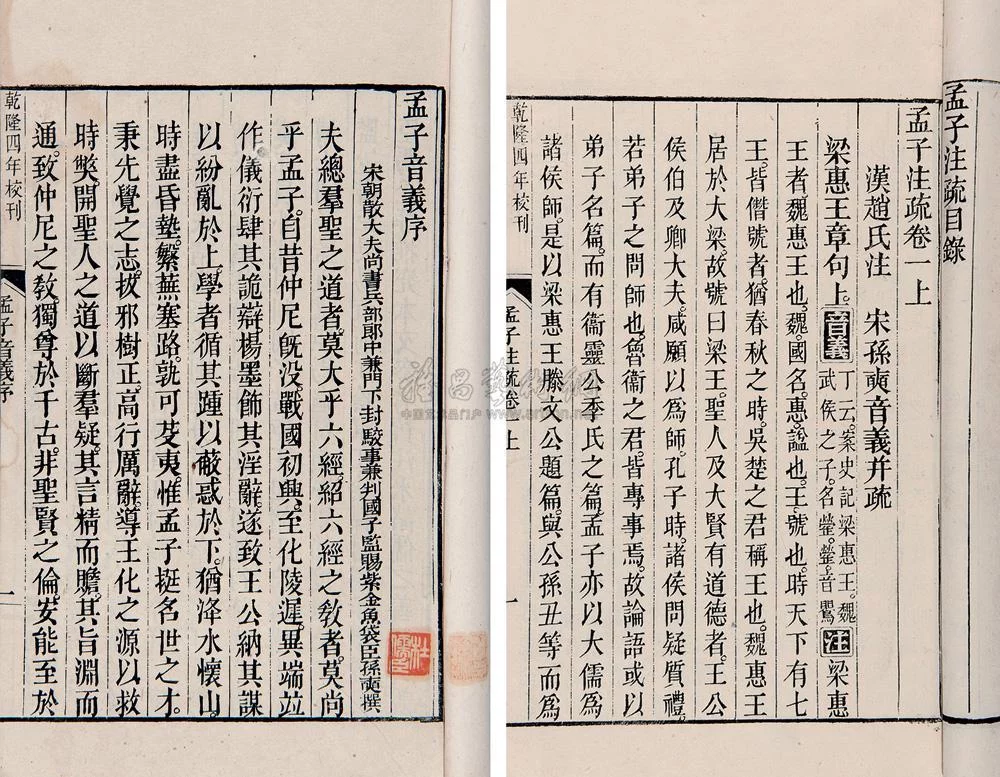 孟子注疏目錄
孟子注疏卷一上
漢趙氏注　宋孫奭音義并疏
梁惠王章句上。音義丁云。案史記梁惠王。魏武侯之子。名罃。罃。音鸎。注梁惠
王者。魏惠王也。魏。國名。惠。謚也。王。號也。時天下有七
王。皆僭號者。猶春秋之時。吳楚之君稱王也。魏惠王
居於大梁。故號曰梁王。聖人及大賢有道德者。王公
侯伯及卿大夫。咸願以爲師。孔子時。諸侯問疑質禮。
若弟子之問師也。魯衞之君。皆專事焉。故論語或以
弟子名篇。而有衞靈公季氏之篇。孟子亦以大儒爲
諸侯師。是以梁惠王滕文公題篇。與公孫丑等而爲
乾隆四年校刊
孟子注疏卷一上
一
孟子音義序
宋朝散大夫尚書兵部郎中兼門下封駁事兼判國子監賜紫金魚袋臣孫奭撰
夫總羣聖之道者。莫大乎六經。紹六經之教者。莫尚
乎孟子。自昔仲尼既没。戰國初興。至化陵遲。異端竝
作。儀衍肆其詭辯。楊墨飾其淫辭。遂致王公納其謀
以紛亂於上。學者循其踵以蔽惑於下。猶洚水懷山。
時盡昏墊。蘩蕪塞路。孰可芟夷。惟孟子挺名世之才。
秉先覺之志。拔邪樹正。高行厲辭。導王化之源以救
時獘。開聖人之道以斷羣疑。其言精而贍。其旨淵而
通。致仲尼之教。獨尊於千古。非聖賢之倫。安能至於
乾隆四年校刊
孟子音義序
一